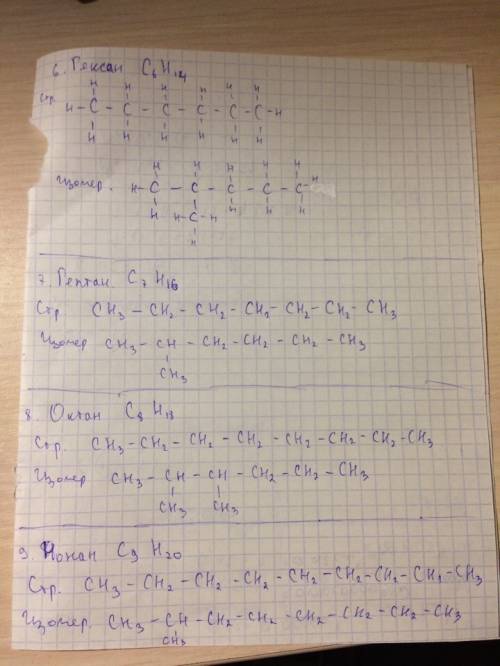 6. Гексан C6H14
H H H H H H
Стр. H - C - C - C - C - C - C - H
H H H H H H
H H H H H
Изомер. H - C - C - C - C - C - H
H H H H
H - C - H
H
7. Гептан. C7H16
Стр CH3 - CH2 - CH2 - CH2 - CH2 - CH2 - CH3
Изомер CH3 - CH - CH2 - CH2 - CH2 - CH3
CH3
8. Октан C8H18
Стр. CH3 - CH2 - CH2 - CH2 - CH2 - CH2 - CH2 - CH3
Изомер CH3 - CH - CH - CH2 - CH2 - CH3
CH3 CH3
9. Нонан C9H20
Стр. CH3 - CH2 - CH2 - CH2 - CH2 - CH2 - CH2 - CH2 - CH3
Изомер. CH3 - CH - CH2 - CH2 - CH2 - CH2 - CH2 - CH3
CH3